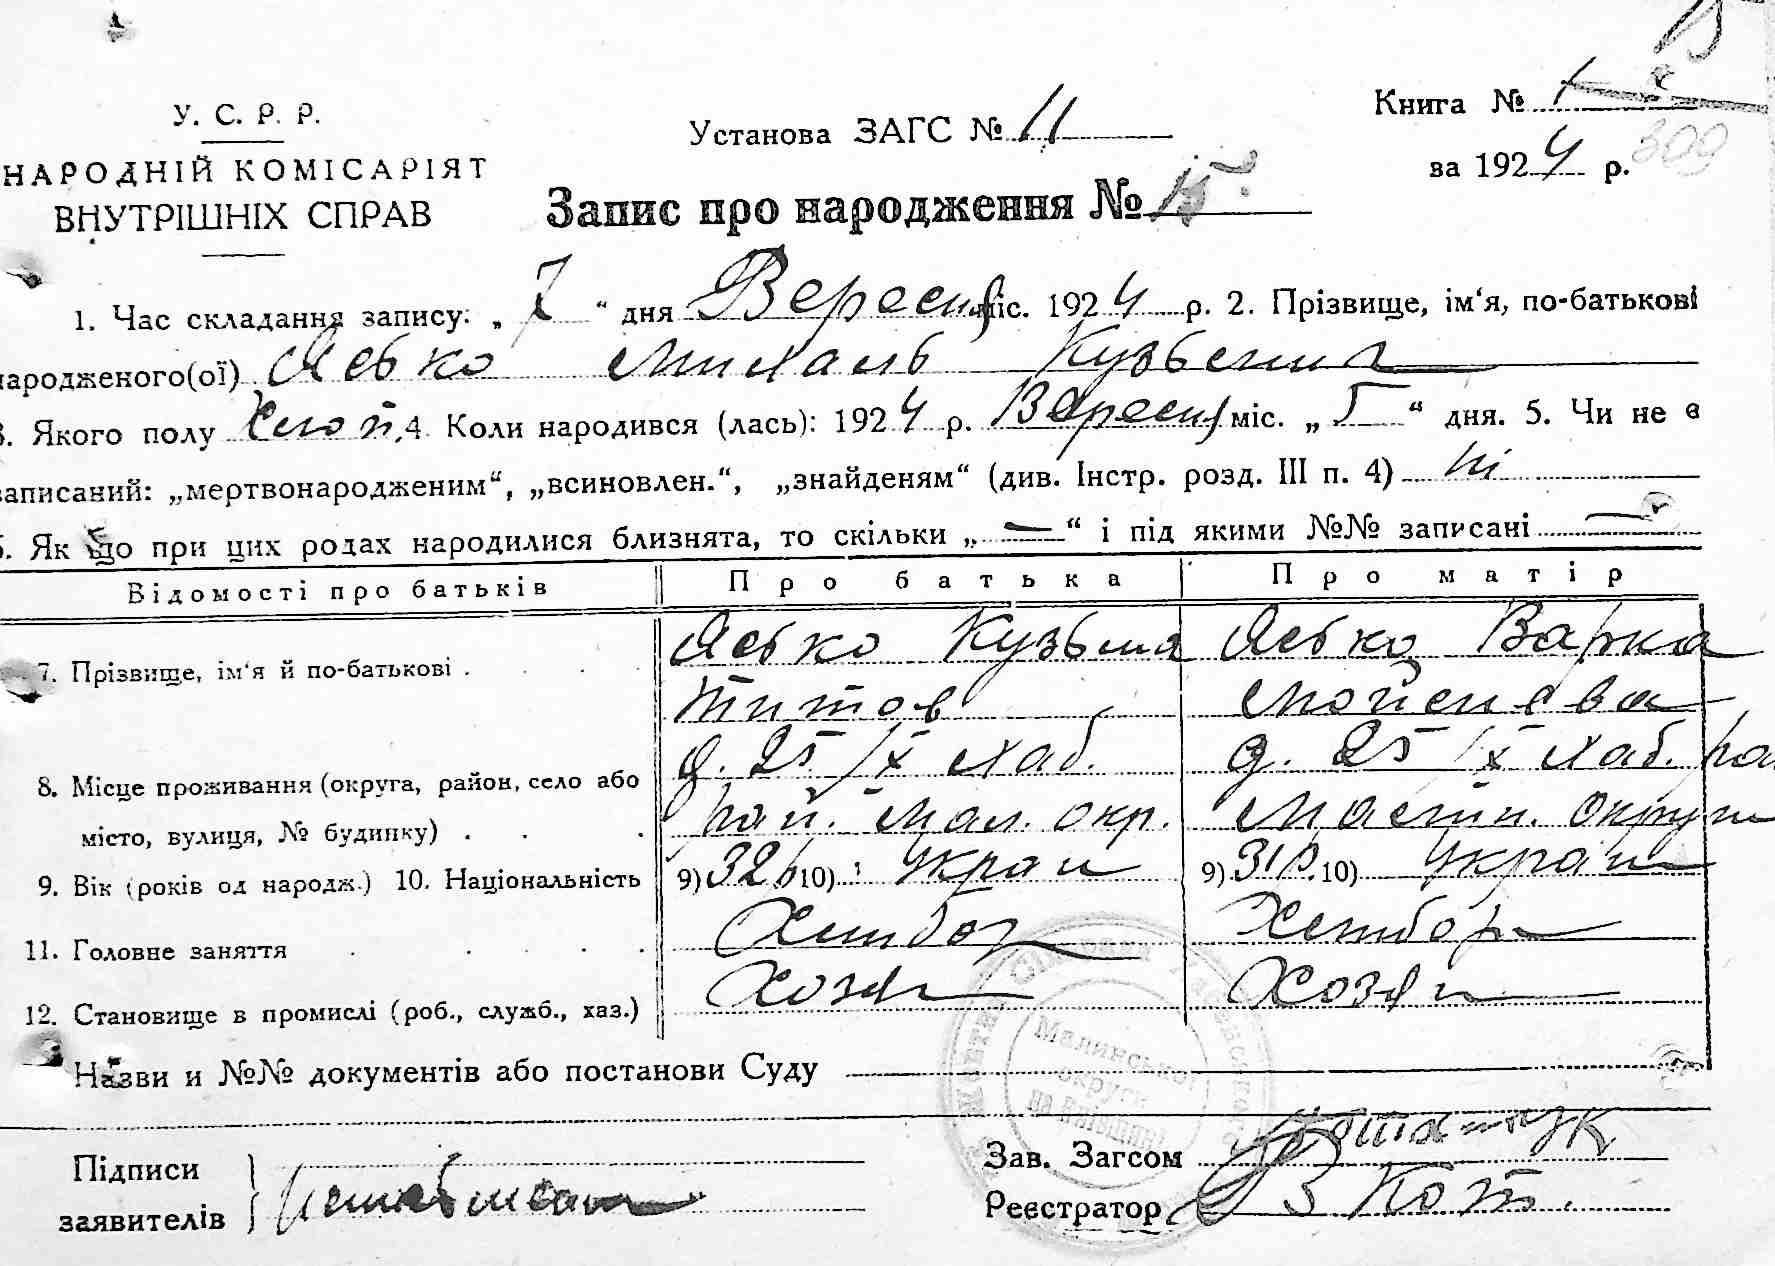 У. С. Р. Р.
НАРОДНІЙ КОМІСАРІЯТ
ВНУТРІШНІХ СПРАВ
Установа ЗАГС № 11
Книга № 1
за 1924 р.
309
Запис про народження № 15.
1. Час складання запису: „ 7 “ дня Вересня міс. 1924 р. 2. Прізвище, ім‘я, по-батькові
народженого(ої) Ясько Михаль Кузьмич
3. Якого полу Хлоп. 4. Коли народився (лась): 1924 р. Вересня міс. „ 5 “ дня. 5. Чи не є
записаний: „мертвонародженим“, „всиновлен.“, „знайденям“ (див. Інстр. розд. III п. 4) ні
6. Як що при цих родах народилися близнята, то скільки „ — “ і під якими №№ записані —
Відомості про батьків Про батька Про матір
7. Прізвище, ім‘я й по-батькові . Ясько Кузьма Ясько Варка
Титов Мойсиєва
8. Місце проживання (округа, район, село або д. 25/X Хаб. д. 25/X Хаб. ра
місто, вулиця, № будинку) . рай. Мал. окр. округи
9. Вік (років од народж.) 10. Національність 9) 32 р 10) Украи 9) 31 р. 10) Украи
11. Головне заняття Хлибор Хлибор
12. Становище в промислі (роб., служб., хаз.) Хозяи Хозяи
Назви и №№ документів або постанови Суду
Малинської
округи
на Київщині
Підписи
заявителів
Зав. Загсом
Реєстратор